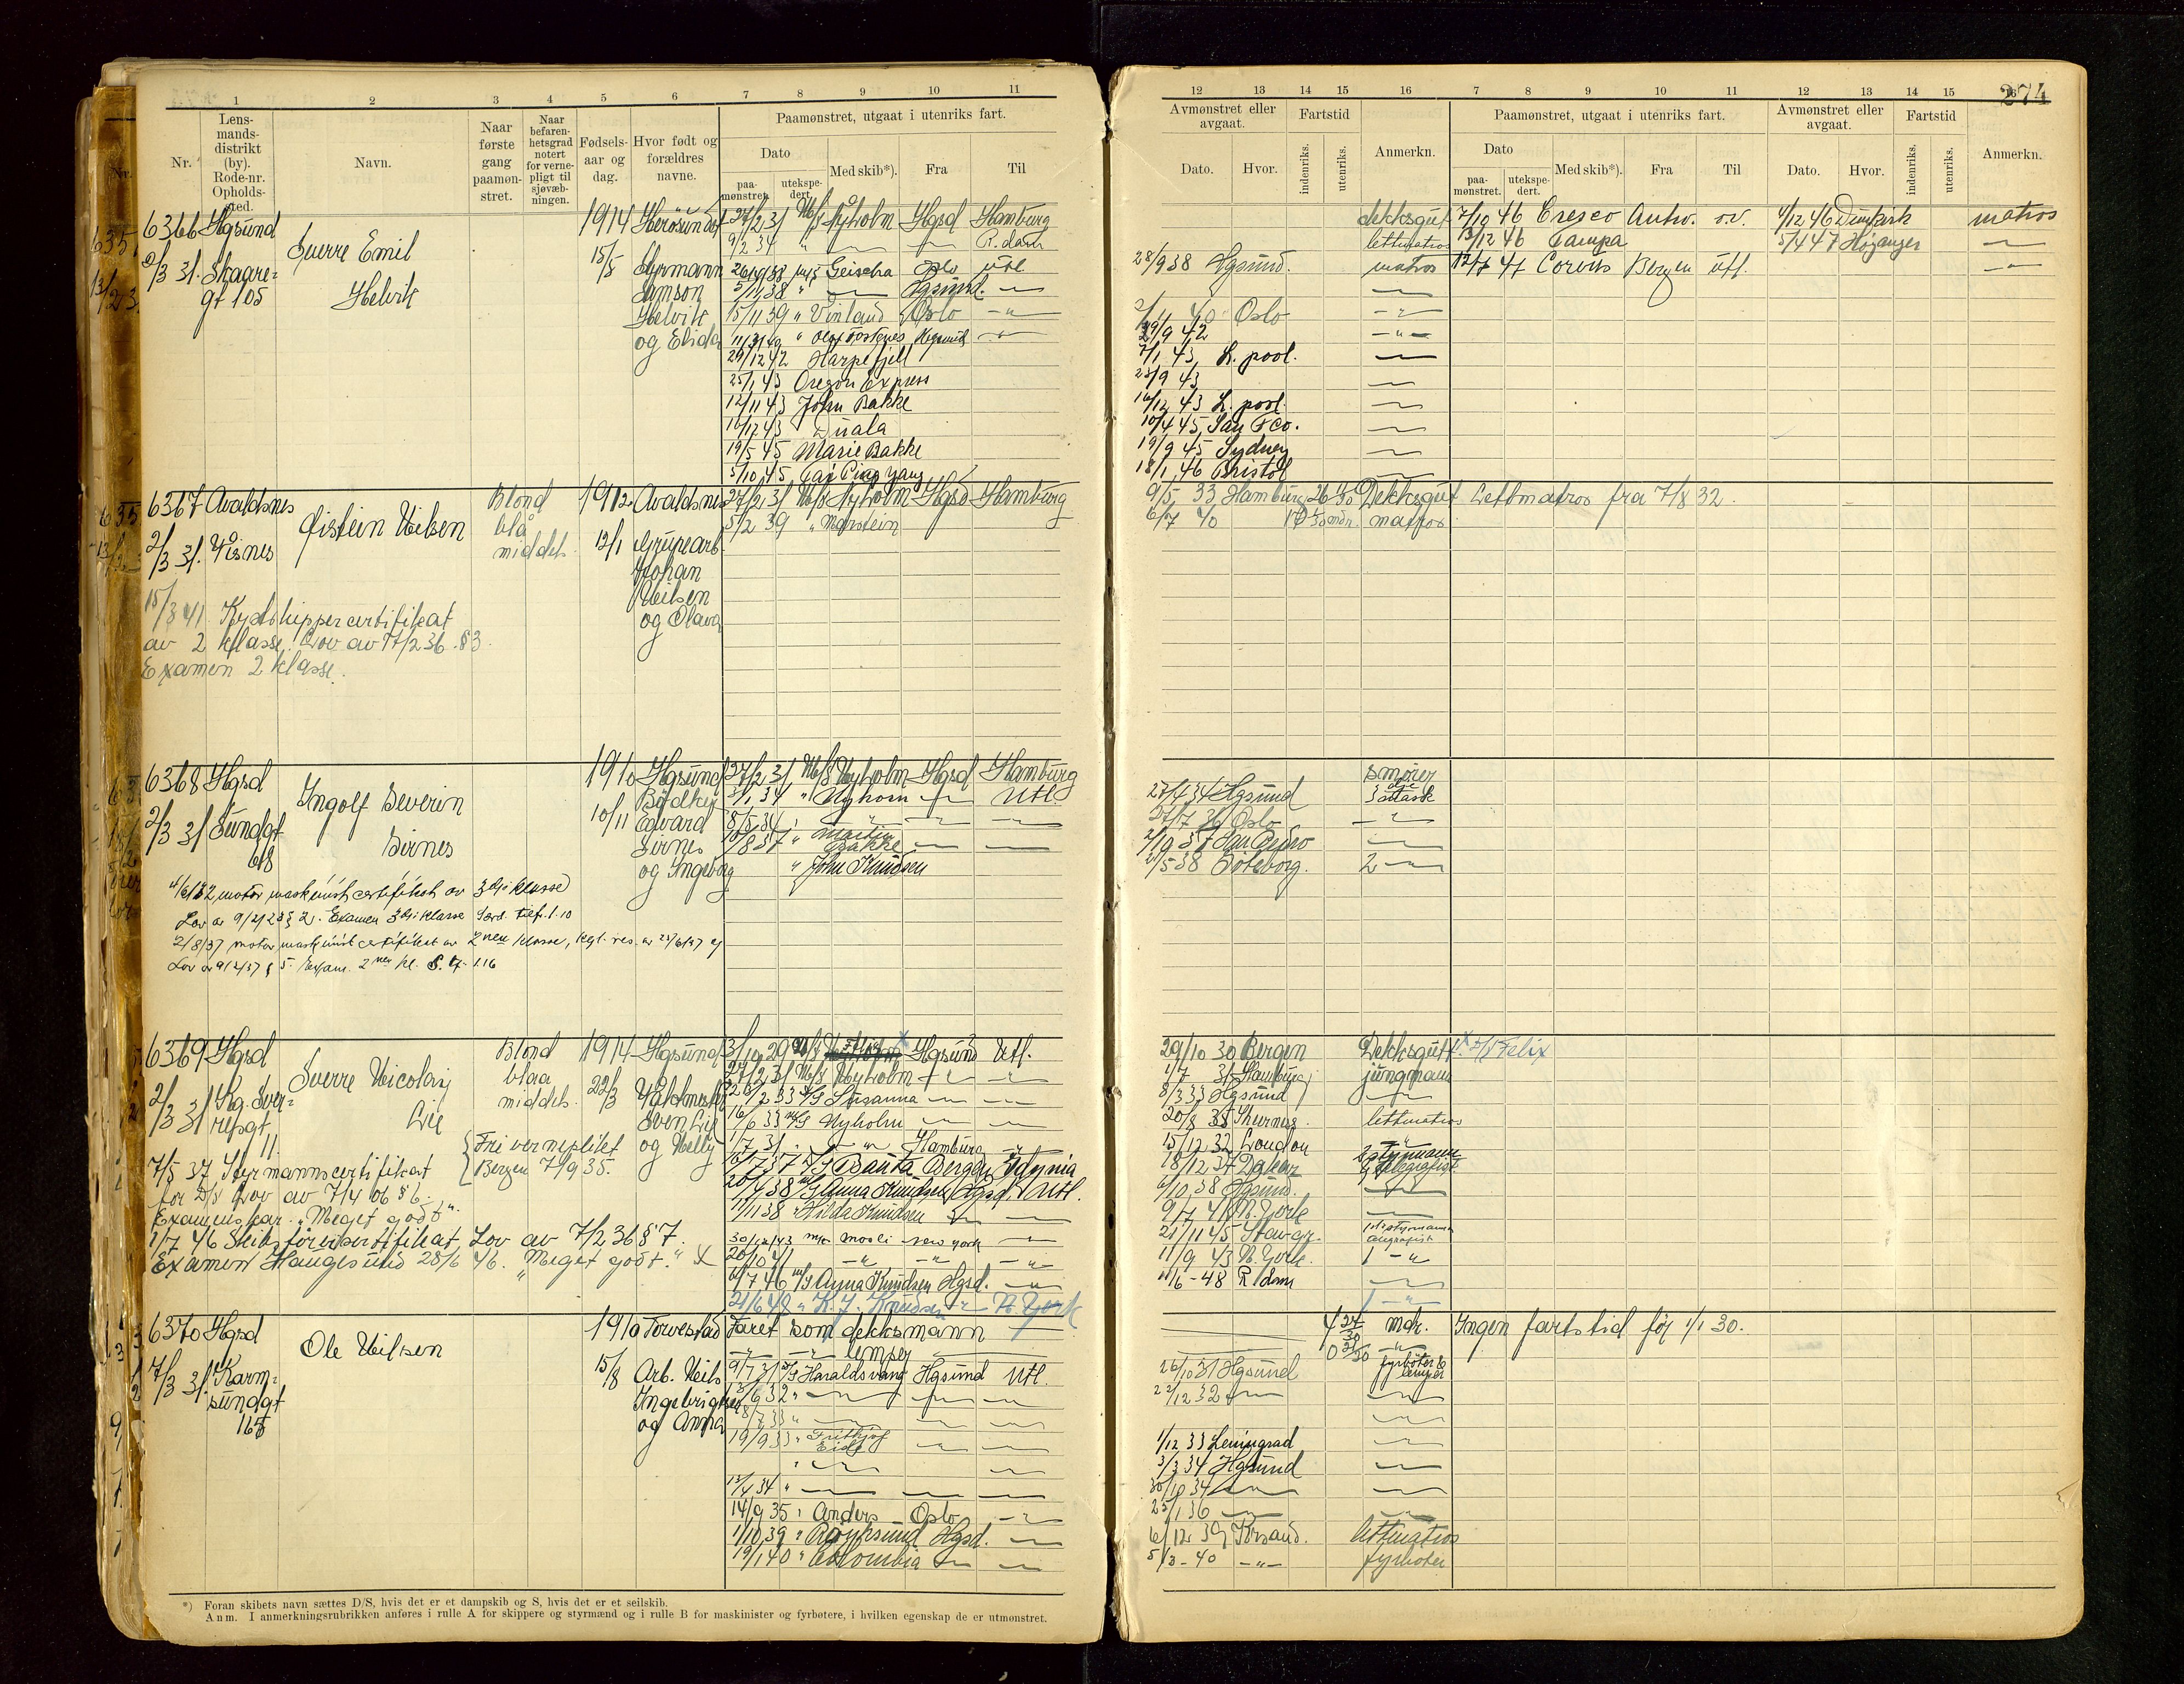 1 2 3 4 5 6 7 8 9 10 11
Nr.
Lens-
mands-
distrikt
(by).
Rode-nr.
Opholds-
sted.
Navn.
Naar
første
gang
paamøn-
stret.
Naar
befaren-
hetsgrad
notert
for verne-
pligt til
sjøvæb-
ningen.
Fødsels-
aar og
dag.
Hvor født og
forældres
navne.
Paamønstret, utgaat i utenriks fart.
Dato
paa-
mønstret.
utekspe-
dert.
Med skib*).
Fra
Til
6366 Hgsund
2/3 31. Skaare-
gt 105
Sverre Emil
Helvik
1914
15/5
Styrmann
Samson
Helvik
og Elida
27/2 31 M/S Nyholm Hgsd Hamburg
9/2 34
R.dam
Geischa Oslo utl
5/11 38 Hgsund.
15/11 39 " Vinland Oslo
29/12 42 Harpefjell
25/1 43 Oregon Express
12/11 43 John Bakke
16/12 43 Duala
19/5 45 Marie Bakke
5/10 45 Tai Ping Yang
6367 Avaldsnes
2/3 31. Visnes
Øistein Nilsen
Blond
blå
middels
1912
12/1
Avaldsnes
Grubearb.
Johan
Nilsen
og Olava
27/2 31 M/S Nyholm Hgsd Hamburg
5/2 39 "
15/3 41. Kystskippercertifikat
av 2 klasse. Lov av 17/2 36 § 3.
Examen 2 klasse.
6368 Hgsd
2/3 31 Sundgt
68
Ingolf Severin
Sirnes
1910
10/11
Hgsund
Bødker
Edvard
Sirnes
og Ingeborg
27/2 31 M/S Nyholm Hgsd Hamburg
3/1 34 " Nyhorn Utl.
8/5 34
10/8 37 " Martin
Bakke
" John Knudsen
4/6 32 motor maskinist certifikat av 3dje klasse
Lov av 9/2/23 § 2. Examen 3dje klasse
2/8/37 motor maskinist certifikat av 2nen klasse, kgl. res. av
Lov av 9/2/37 § 5. Exam. 2nen kl.
6369 Hgsd
2/3 31 Kg. Sver-
resgt
11.
Sverre Nicolay
Lie
Blond
blaa
middels.
1914
22/3
Hgsund
Sven Lie
og Nelly
3/10 29 Hgsund Utl.
27/2 31 M/S Nyholm
Susanna
16/6 33 M/S Nyholm
1/7 31 Hamburg
Banta Bergen Gdynia
20/4 38 M/S Anna Knudsen Hgsd. Utl.
1/11 38 " Hilda Knudsen
30/12/43 M/S Mosli New York
20/10 41
6/7 46 M/S Anna Knudsen Hgsd.
21/6 48 " K. J. Knudsen N. York
{Fri verneplikt
{Bergen 7/9 35.
7/5 37 Styrmannscertifikat
for D/S Lov av 7/4 06 § 6.
Examenskar. "Meget godt".
1/7 46 Skibsførercertifikat Lov av 7/2 36 § 7.
Examen Haugesund 28/6 46. "Meget godt."
6370 Hgsd
7/3 31. Karm-
sundgt
165
Ole Nilsen
1910
15/8
Torvestad
Arb. Nils
Ingebrigtsen
og Anna
Faret som dekksmann
lemper
9/7 31 D/S Haraldsvang Hgsund Utl.
3/6 32 "
8/7 33 "
19/9 33 " Fritjof
Eide
13/4 34 "
14/9 35 " Anders Oslo
1/10 39 " Røyksund Hgsd.
19/1 40 " Colombia
*) Foran skibets navn sættes D/S, hvis det er et dampskib og S, hvis det er et seilskib.
Anm. I anmerkningsrubrikken anføres i rulle A for skippere og styrmænd og i rulle B for maskinister og fyrbøtere, i hvilken egenskap de er utmønstret.
274
12 13 14 15 16 7 8 9 10 11 12 13 14 15
Avmønstret eller
avgaat.
Dato. Hvor.
Fartstid
indenriks.
utenriks.
Anmerkn.
Paamønstret, utgaat i utenriks fart.
Dato
paa-
mønstret.
utekspe-
dert.
Med skib*).
Fra
Til
Avmønstret eller
avgaat.
Dato. Hvor.
Fartstid
indenriks.
utenriks.
Anmerkn.
dekksgut 7/10 46 Cresco Antw. o.v. 4/12 46 Dunkirk matros
lettmatros 13/12 46 Tampa 5/4 47 Høyanger
28/9 38 Hgsund. matros 12/7 47 Corvus Bergen utl.
Oslo
29/9 42
7/1 43 L. pool.
23/9 43
16/12 43 L. pool.
10/4 45 San Fco.
19/9 45 Sydney
18/1 46 Bristol
9/5 33 Hamburg Dekksgut Lettmatros fra 7/8 32.
6/7 40 matros
smører
27/4 34 Hgsund
27/7 36 Oslo
2/10 37 San Pedro
2/5 38 Göteborg. 2
29/10 30 Bergen Dekksgutt x. D/S Felix
1/7 31 Hamburg jungmann
8/3 33 Hgsund
lettmatros
15/12 32 London
18/12 37 Dakar 2 styrmann
telegrafist
6/10 38 Hgsund.
9/7 41 N. York
21/11 45 Stavgr.
11/9 43 N. York. 1
11/6 - 48 R dam
4 24/30 mdr. Ingen fartstid før 1/1 30.
26/10 31 Hgsund fyrbøter &
lemper
22/12 32
1/12 33 Leningrad
3/3 34 Hgsund
30/10 34
25/1 36
6/12 39 Krsand. lettmatros
5/3 - 40 fyrbøter